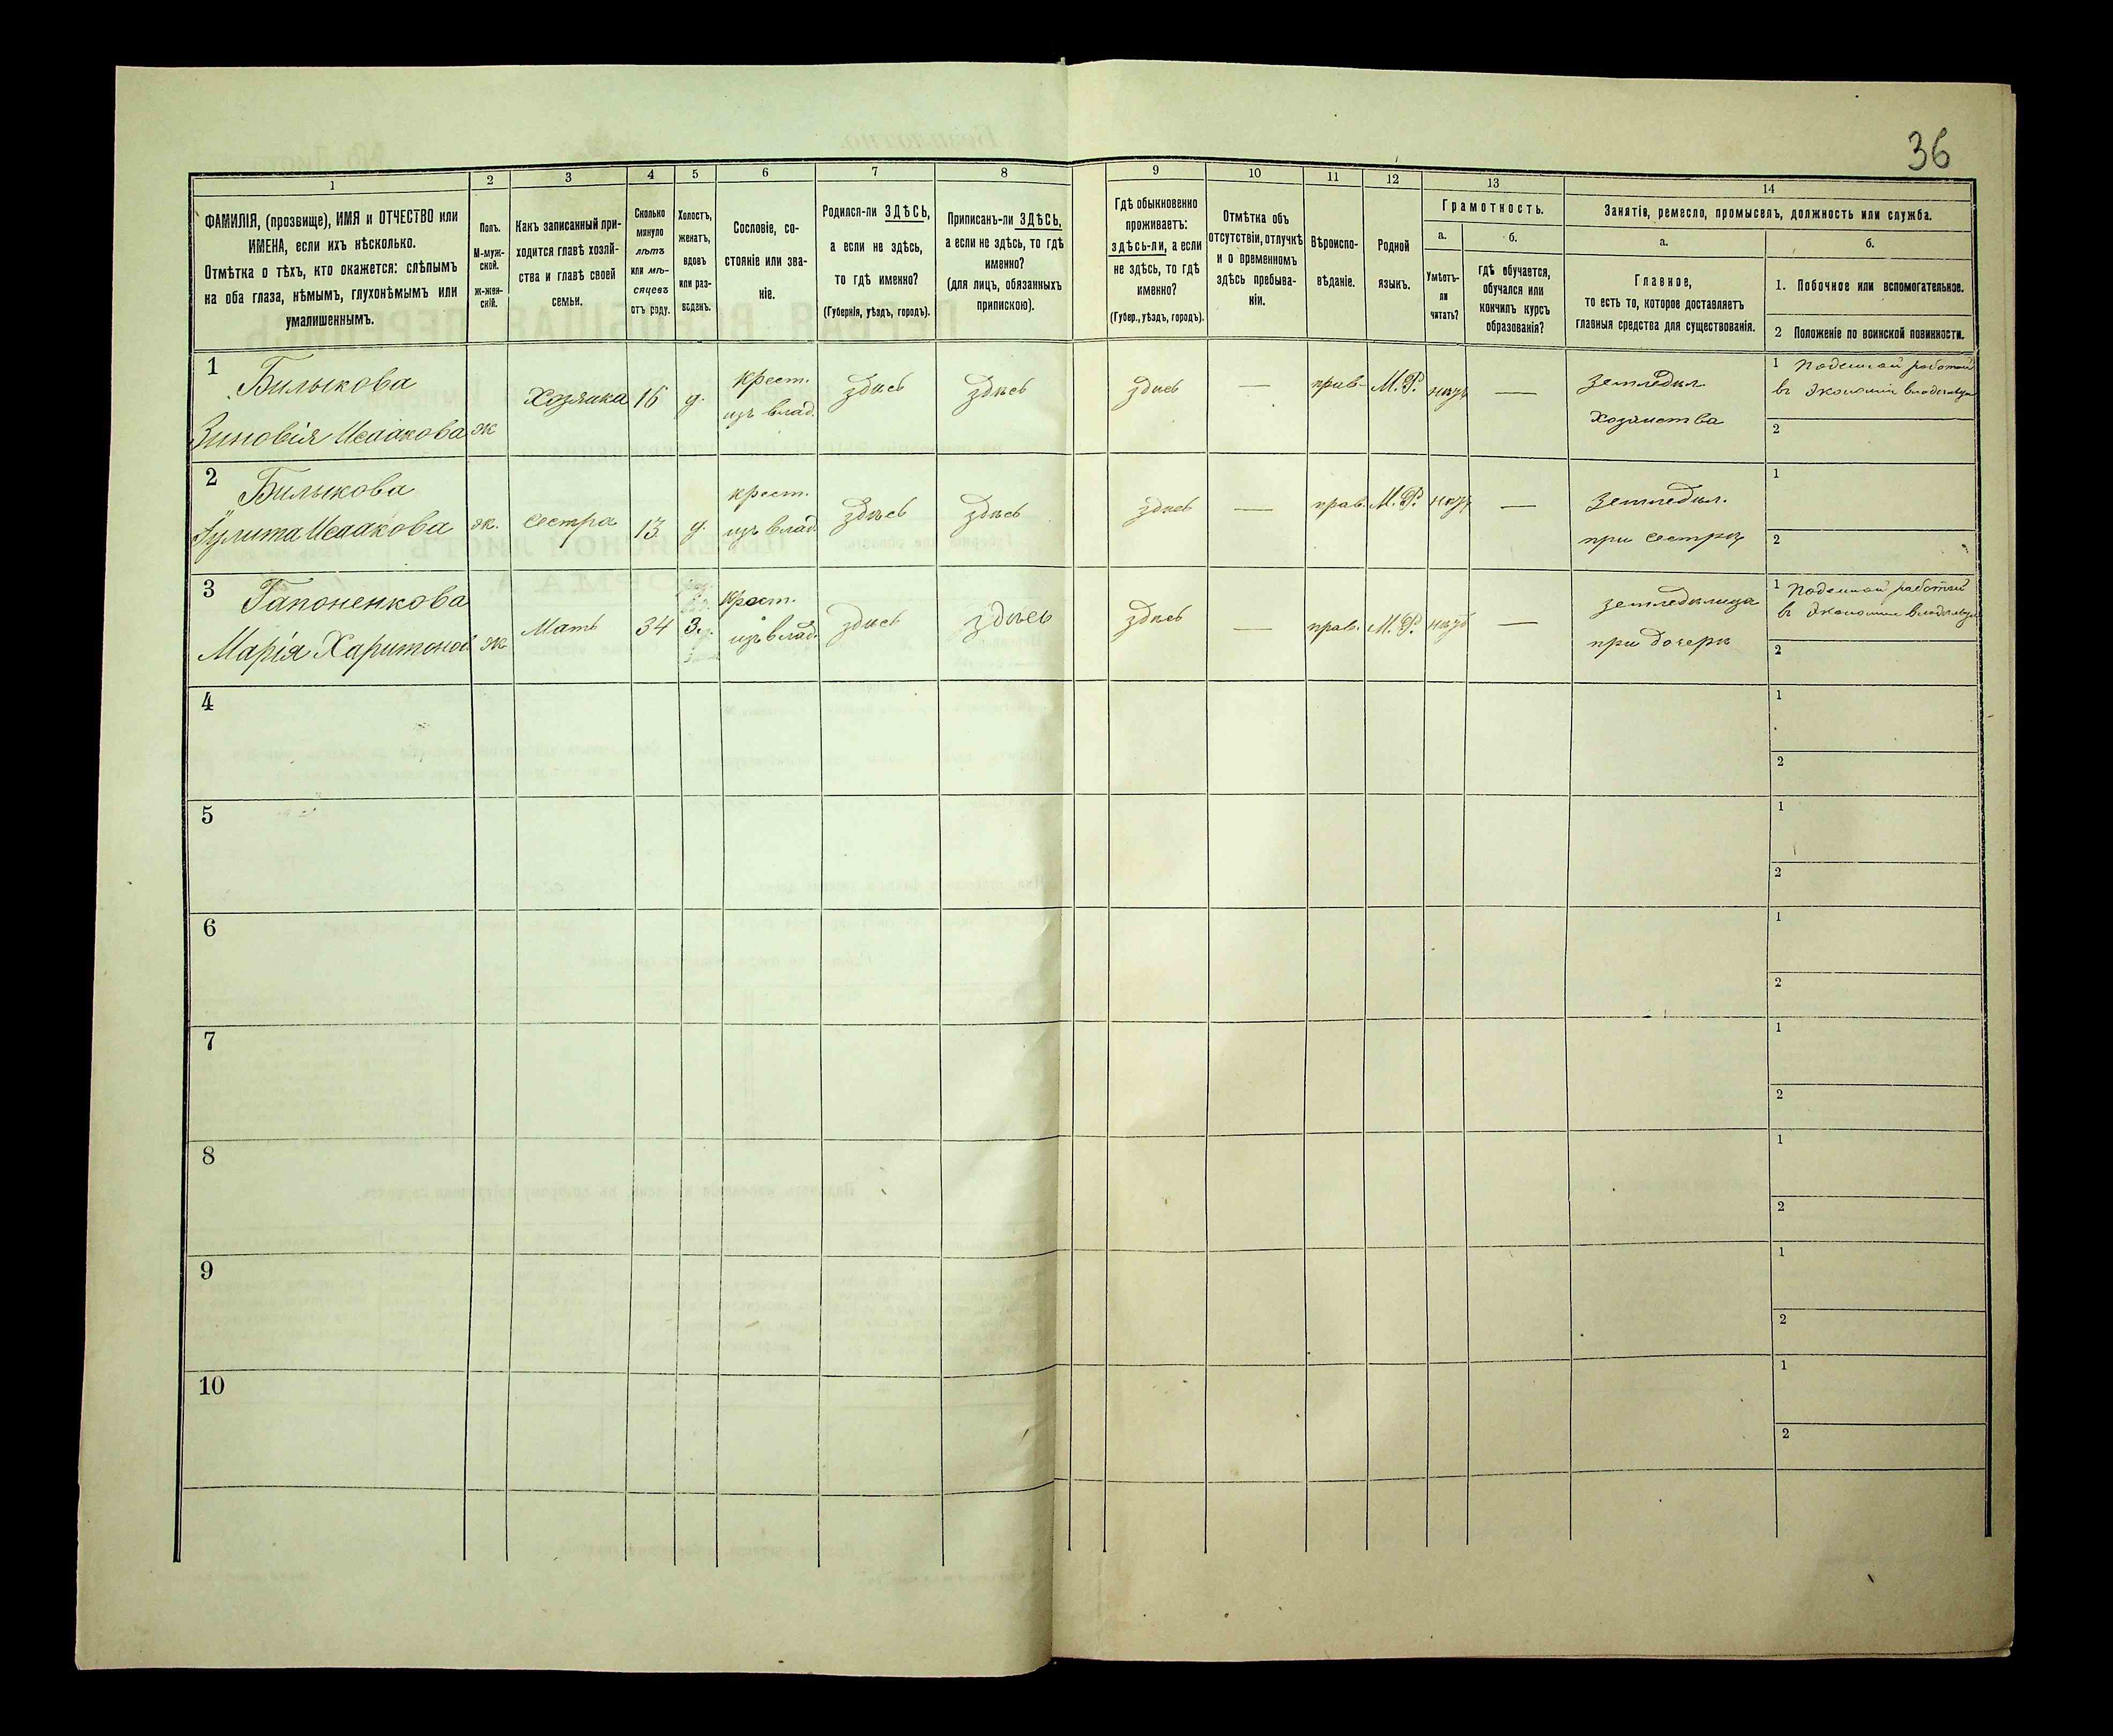 36
1
2
3
4
5
6
7
8
9
10
11
12
13
14
ФАМИЛІЯ, (прозвище), ИМЯ и ОТЧЕСТВО или
ИМЕНА, если ихъ нѣсколько.
Отмѣтка о тѣхъ, кто окажется: слѣпымъ
на оба глаза, нѣмымъ, глухонѣмымъ или
умалишеннымъ.
Полъ.
М-муж-
ской.
ж-жен-
скій.
Какъ записанный при-
ходится главѣ хозяй-
ства и главѣ своей
семьи.
Сколько
минуло
лѣтъ
или мѣ-
сяцевъ
отъ роду.
Холостъ,
женатъ,
вдовъ
или раз-
веденъ.
Сословіе, со-
стояніе или зва-
ніе.
Родился-ли ЗДѢСЬ,
а если не здѣсь,
то гдѣ именно?
(Губернія, уѣздъ, городъ).
Приписанъ-ли ЗДѢСЬ,
а если не здѣсь, то гдѣ
именно?
(для лицъ, обязанныхъ
припискою).
Гдѣ обыкновенно
проживаетъ:
здѣсь-ли, а если
не здѣсь, то гдѣ
именно?
(Губер., уѣздъ, городъ).
Отмѣтка объ
отсутствіи, отлучкѣ
и о временномъ
здѣсь пребыва-
ніи.
Вѣроиспо-
вѣданіе.
Родной
языкъ.
Грамотность.
а.
Умѣетъ-
ли
читать?
б.
гдѣ обучается,
обучался или
кончилъ курсъ
образованія?
Занятіе, ремесло, промыселъ, должность или служба.
а.
Главное,
то есть то, которое доставляетъ
главныя средства для существованія.
б.
1. Побочное или вспомогательное.
2 Положеніе по воинской повинности.
1
Билыкова
Зиновія Исаакова
ж
Хозяика
16
д.
крест.
изъ влад.
здѣсь
здѣсь
здѣсь
—
прав.
М.Р.
—
земледѣл.
хозяиства
1 Поденной работой
въ Экономіи
2
2
Билыкова
Исаакова
ж.
сестра
13
д.
крест.
изъ влад.
здѣсь
здѣсь
здѣсь
—
прав.
М.Р.
—
земледѣл.
при сестрѣ
1
2
3
Гапоненкова
Марія Харитонова
ж
Мать
34
З.
крест.
изъ влад.
здѣсь
здѣсь
здѣсь
—
прав.
М.Р.
—
земледѣлица
при дочери
1 Поденной работой
въ Экономіи
2
4
1
2
5
1
2
6
1
2
7
1
2
8
1
2
9
1
2
10
1
2